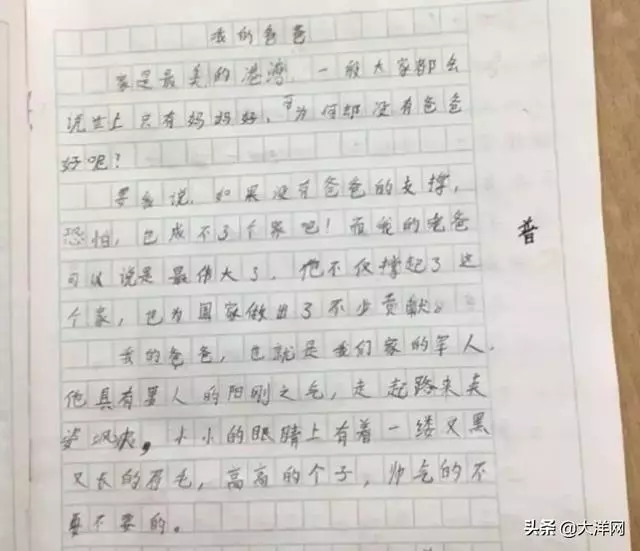 我的爸爸
家是最美的港湾，一般大家都会
说世上只有妈妈好，可为何却没有爸爸
好呢？
要我说，如果没有爸爸的支撑，
恐怕，也成不了个家吧！而我的老爸
可以说是最伟大了，他不仅撑起了这
个家，也为国家做出了不少贡献。
我的爸爸，也就是我们家的军人，
他具有男人的阳刚之气，走起路来英
姿飒爽，小小的眼睛上有着一缕又黑
又长的眉毛，高高的个子，帅气的不
要不要的。
普
头条 @大洋网